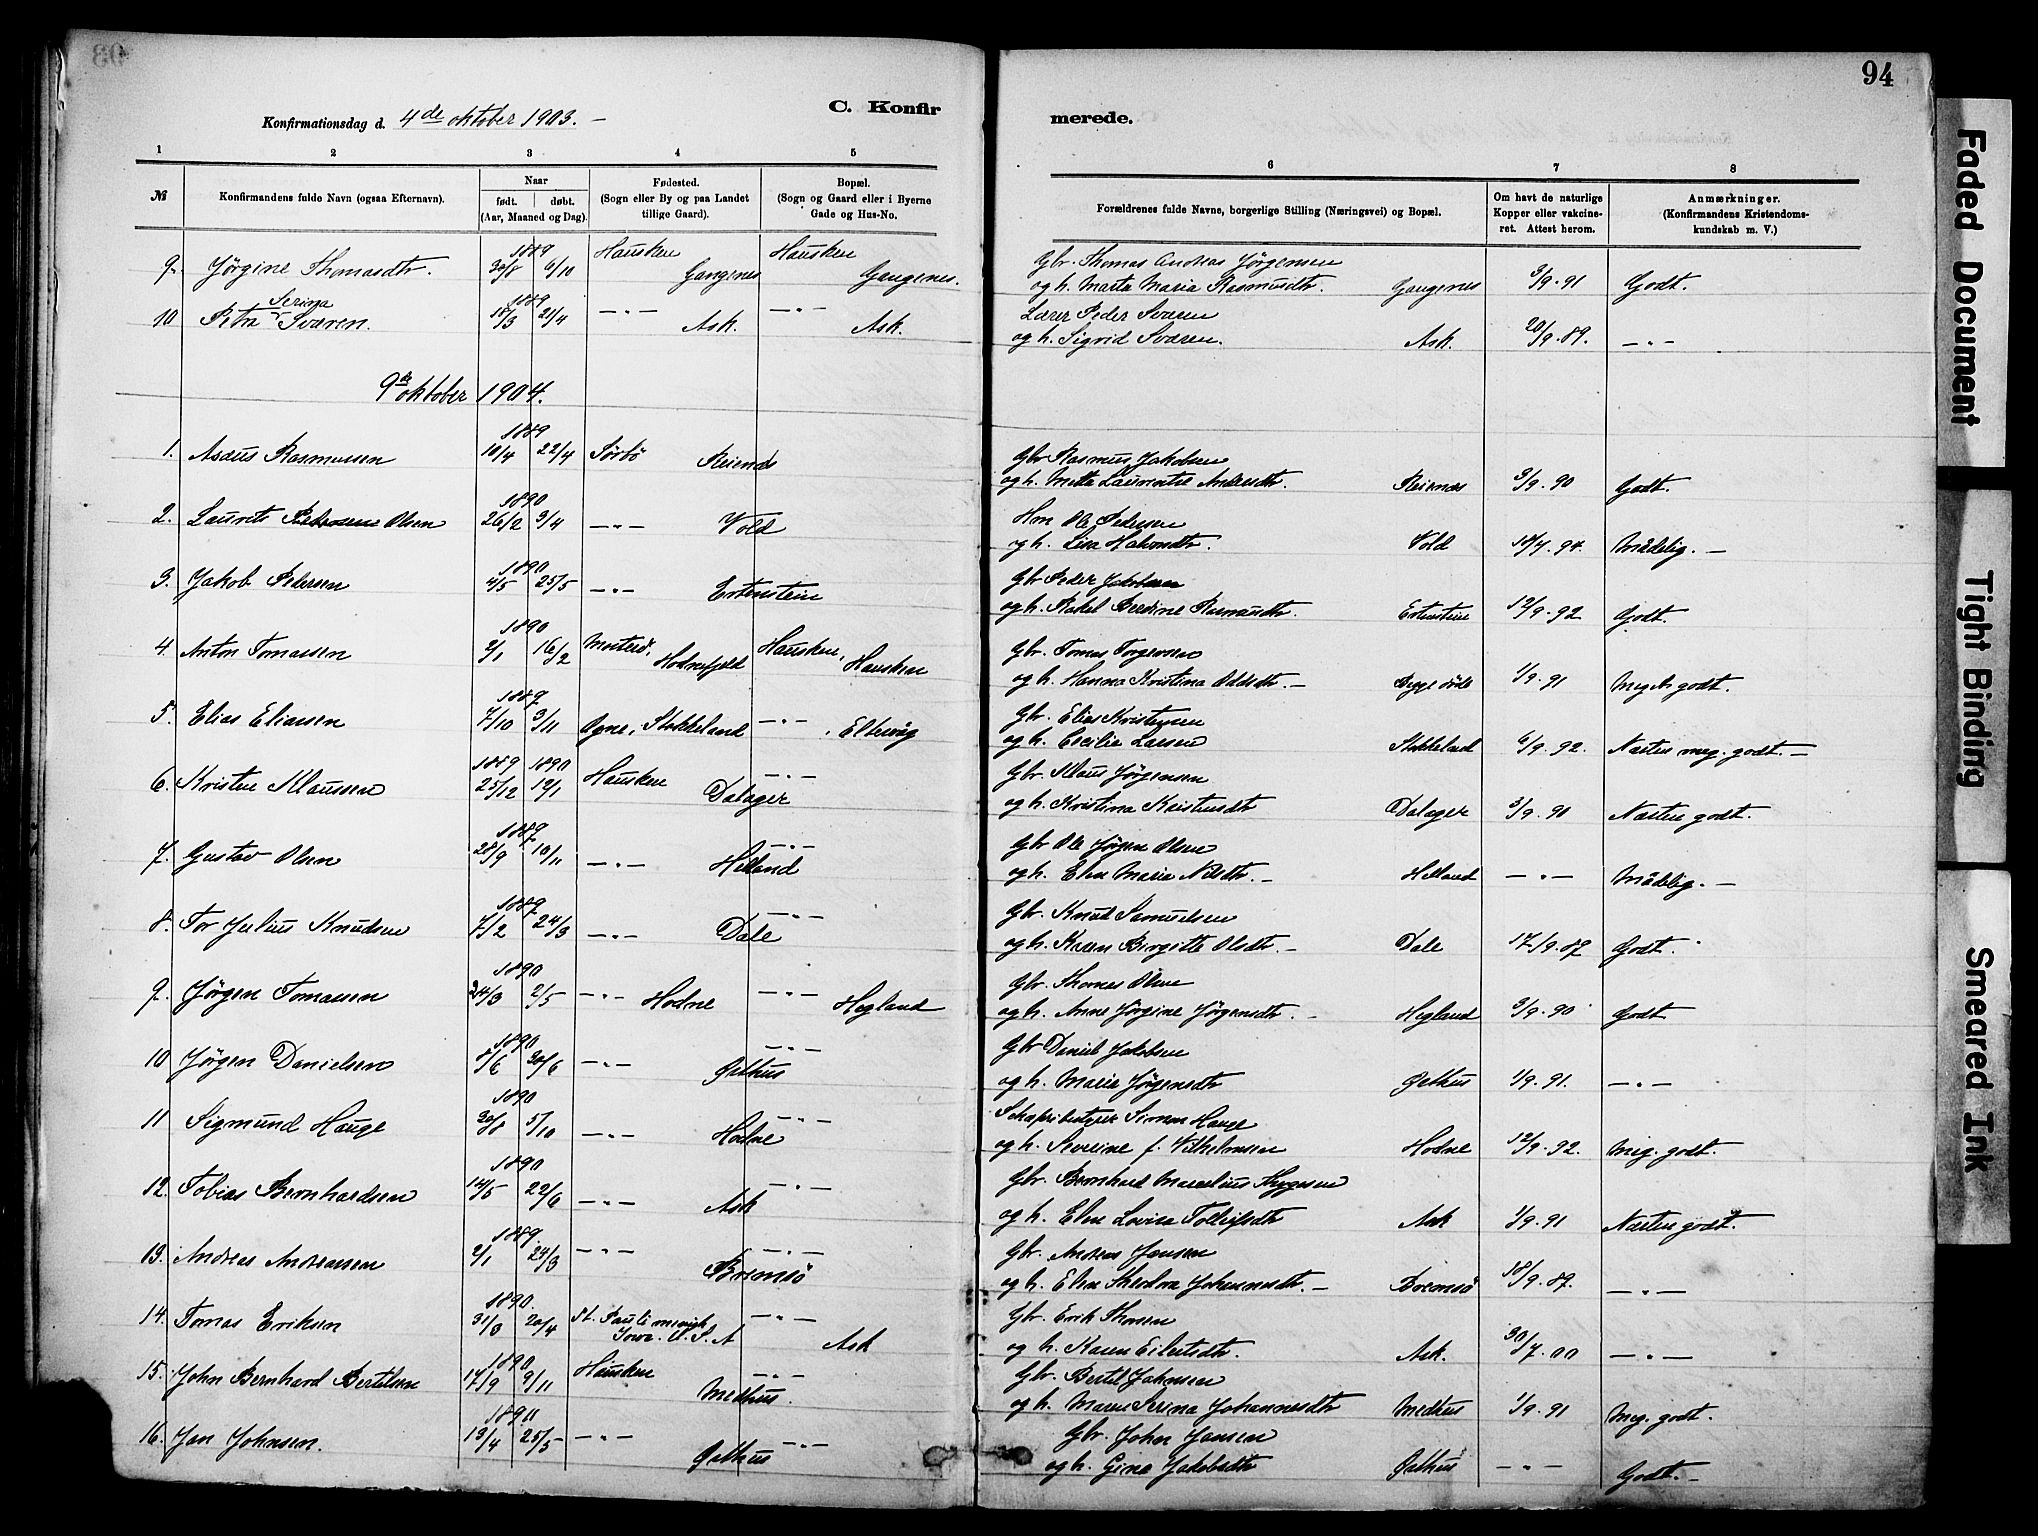 94
Konfirmationsdag d. 4de oktober 1903. –
C. Konfirmerede.
1 2 3 4 5 6 7 8
№ Konfirmandens fulde Navn (ogsaa Efternavn). Naar født. døbt. (Aar, Maaned og Dag). Fødested. (Sogn eller By og paa Landet tillige Gaard). Bopæl. (Sogn og Gaard eller i Byerne Gade og Hus-No. Forældrenes fulde Navne, borgerlige Stilling (Næringsvei) og Bopæl. Om havt de naturlige Kopper eller vakcineret. Attest herom. Anmærkninger. (Konfirmandens Kristendomskundskab m. V.)
9. Jørgine Thomasdtr. 1889 30/8 6/10 Hausken Gangenes Hausken Gangenes. Gbr. Thomas Andreas Jørgensen
og h. Marta Maria Rasmusdtr. Gangenes 3/9.91 Godt.
10 Petra Serina Sværen. 1889 18/3 21/4 —„— Ask. —„— Ask. Lærer Peder Sværen
og h. Sigrid Sværen. Ask. 20/9.89. —„—
9de oktober 1904.
1. Asæus Rasmussen 1889 10/4 22/4 Sørbø Reienæs Gbr Rasmus Jakobsen
og h. Mette Lauritse Andersdtr. Reienæs 3/9.90 Godt.
2. Laurits Pedersen Olsen 1890 26/2 3/4 —„— Vold Hm Ole Pedersen
og h. Lisa Halvorsdtr. Vold Mådelig. –
3. Jakob Pedersen 1890 4/5 25/5 —„— Ertenstein Gbr Peder Jakobsen
og h. Rakel Berdine Rasmusdtr. Ertenstein 12/9.92 Godt.
4. Anton Tomassen 1890 2/1 16/2 Mosterø, Hodnefjeld Hausken, Hausken Gbr. Tomas Torgersen
og h. Hanna Kristina Oldsdtr. – Begge døde 1/9.91 Meget godt.
5. Elias Eliassen 1889 7/10 3/11 Ogne, Stokkeland —„— Eltervåg Gbr. Elias Kristensen
og h. Cecilia Larsen Stokkeland 6/9.92. Næsten meg. godt. –
6. Kristen Klaussen 1889 1890 25/12 12/1 Hausken Dalager —„— Gbr. Klaus Jørgensen
og h. Kristina Kristensdtr Dalager 3/9.90 Næsten godt.
7. Gustav Olsen 1889 28/9 10/11 —„— Helland —„— Gbr Ole Jørgen Olsen
og h. Elen Maria Nilsdtr. – Helland —„— Mådelig. –
8. Tor Julius Knudsen 1889 7/2 24/3 —„— Dale —„— Gbr. Knud Samuelsen
og h. Karen Birgitte Olsdtr. – Dale 17/9.89 Godt.
9. Jørgen Tomassen 1890 24/3 2/5 —„— Hodne —„— Hegland Gbr. Thomas Olsen
og h. Anne Jørgine Jørgensdtr. – Hegland 3/9.90 Godt
10 Jørgen Danielsen 1890 8/6 30/6 —„— Østhus —„— Gbr Daniel Jakobsen
og h. Maria Jørgensdtr Østhus 1/9.91. —„—
11 Sigmund Hauge 1890 30/8 5/10 —„— Hodne —„— Simon Hauge
og h. Severine f. Vilhelmsen Hodne 12/9.92. Meg. godt.
12. Tobias Bernhardsen 1890 14/5 22/6 —„— Ask —„— Gbr. Bernhard Marselius Thygesen
og h. Elen Lovisa Tollefsdtr Ask 1/9.91 Næsten godt.
13. Andreas Andreassen 1889. 2/1 24/3 —„— Bremsø —„— Gbr. Andreas Jansen
og h. Elen Theodora Johannesdtr. – Bremsø 18/9.89. —„—
14. Tomas Eriksen 1890. 31/3 20/4 St. Pauli menigh. Iowa. U.S.A —„— Ask Gbr. Erik Thorsen
og h. Karen Eilertsdtr. Ask. 30/7.00 —„—
15. John Bernhard Bertelsen 1890 17/9 9/11 Hausken Medhus. —„— Gbr. Bertel Johnsen
og h. Maren Serina Johannesdtr Medhus 1/9.91 Meg. godt.
16. Jan Johnsen. 1890 13/4 25/5 —„— Østhus —„— Gbr. John Jansen
og h. Gina Jakobsdtr Østhus —„— Godt. –
Faded Document
Tight Binding
Smeared Ink